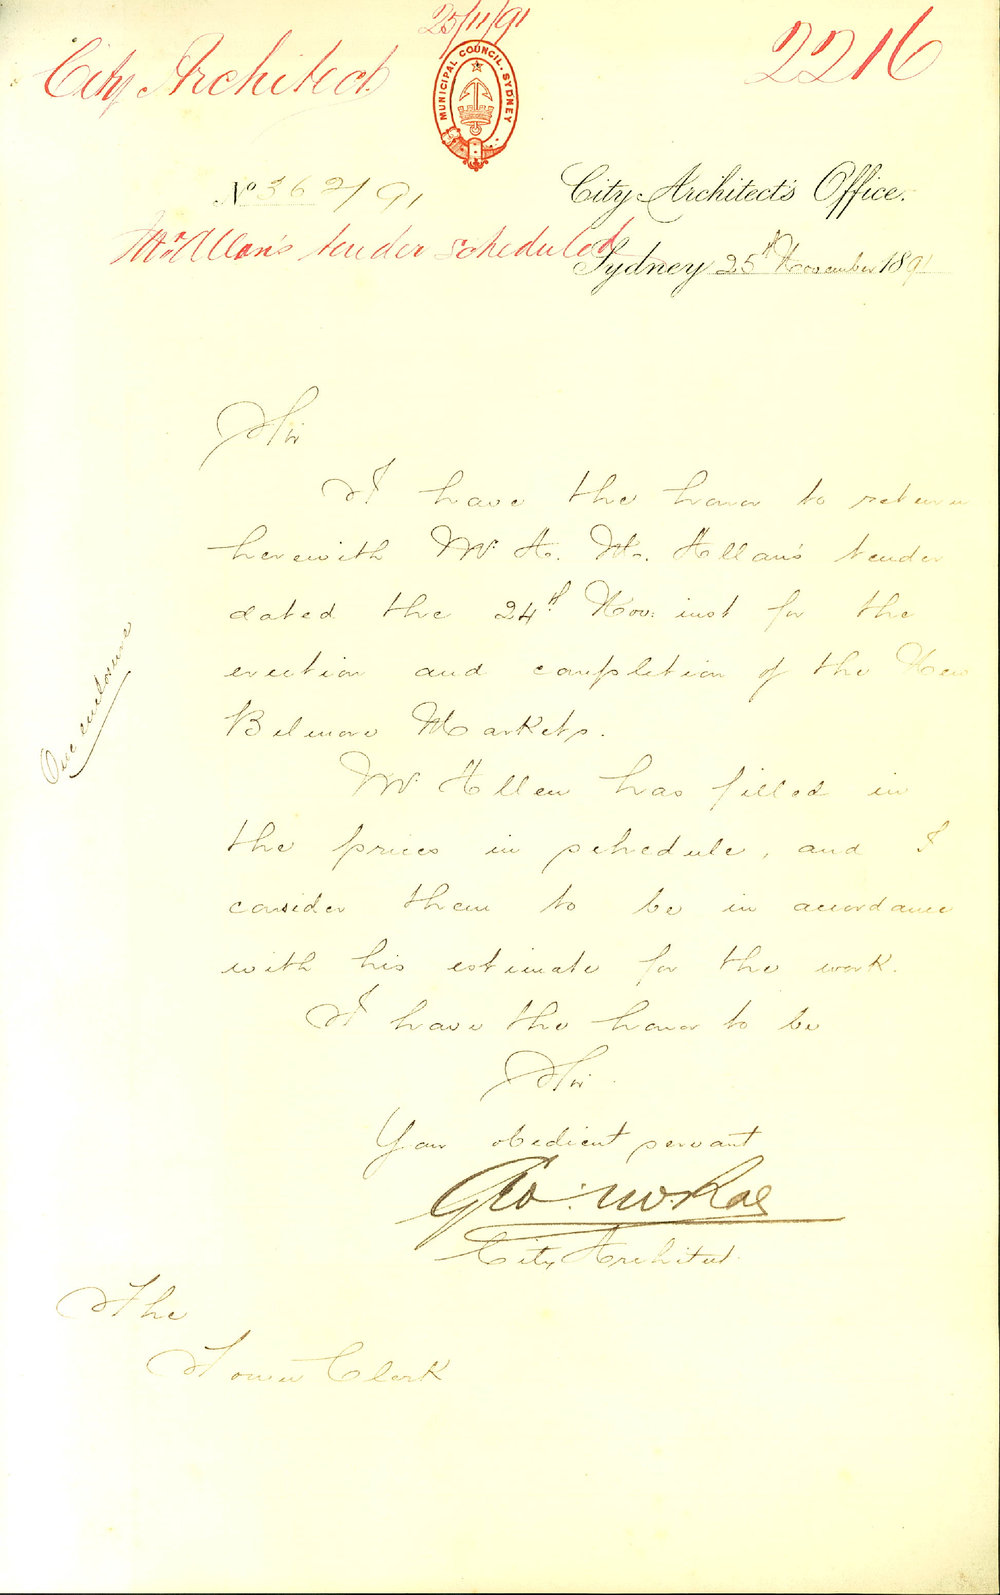 25/11/91
City Architect
2216
MUNICIPAL COUNCIL. SYDNEY
No 362/91
City Architect's Office.
Mr Allan's tender scheduled
Sydney 25th November 1891
Sir
I have the honor to return
herewith Mr A. M. Allan's tender
dated the 24th Nov: inst for the
erection and completion of the New
Belmore Markets.
One enclosure
Mr Allen has filled in
the prices in schedule, and I
consider them to be in accordance
with his estimate for the work.
I have the honor to be
Sir
Your obedient servant
Geo: McRae
City Architect
The
Town Clerk